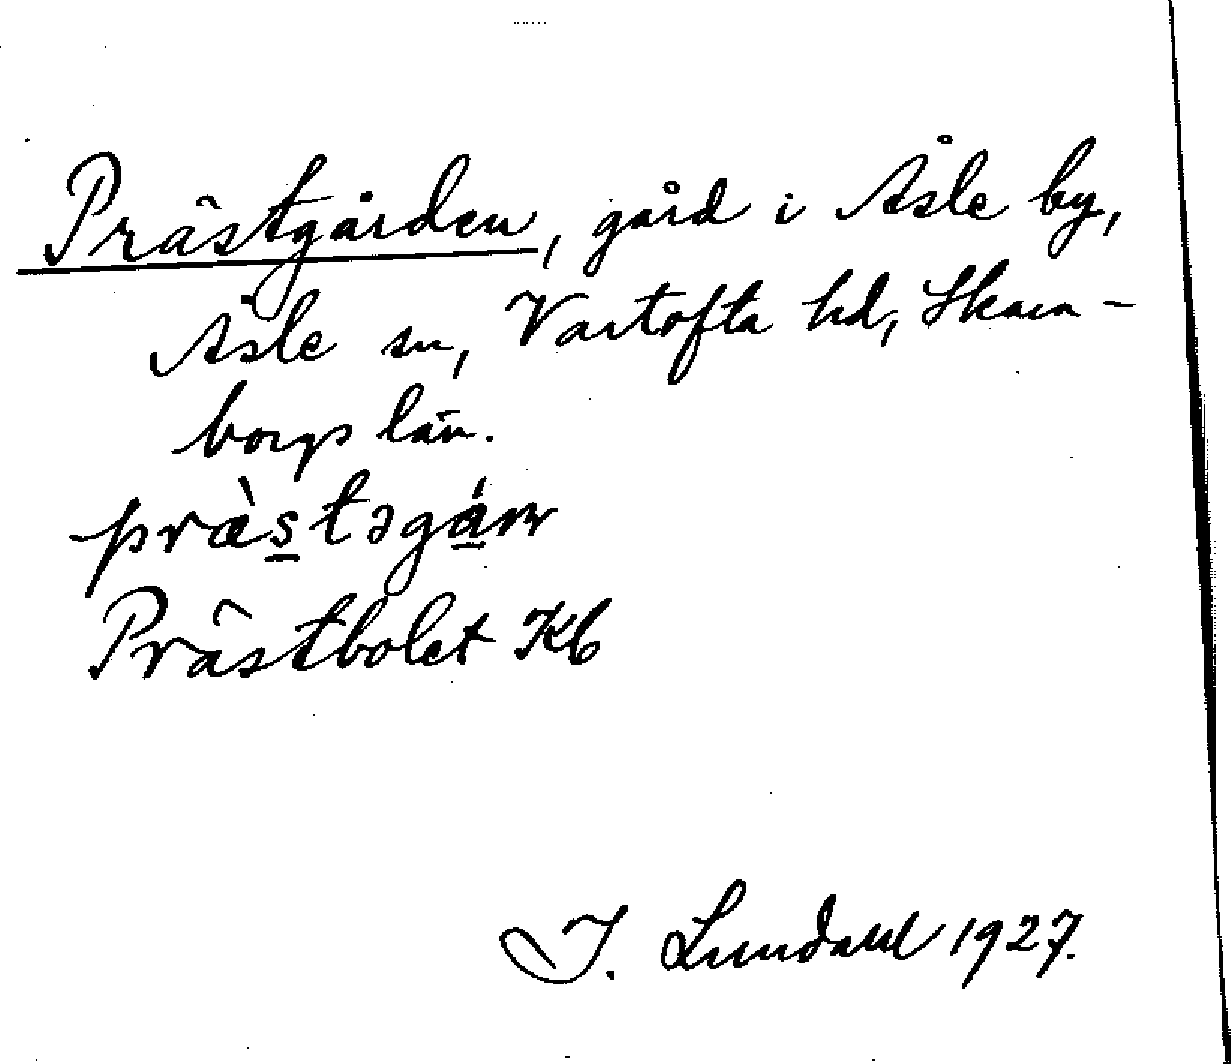 Prästgården, gård i Åsle by,
Åsle sn, Vartofta hd, Skara-
borgs län.
præ̀s̲təgá̲ɹn
Prästbolet Kb
I. Lundahl 1927.